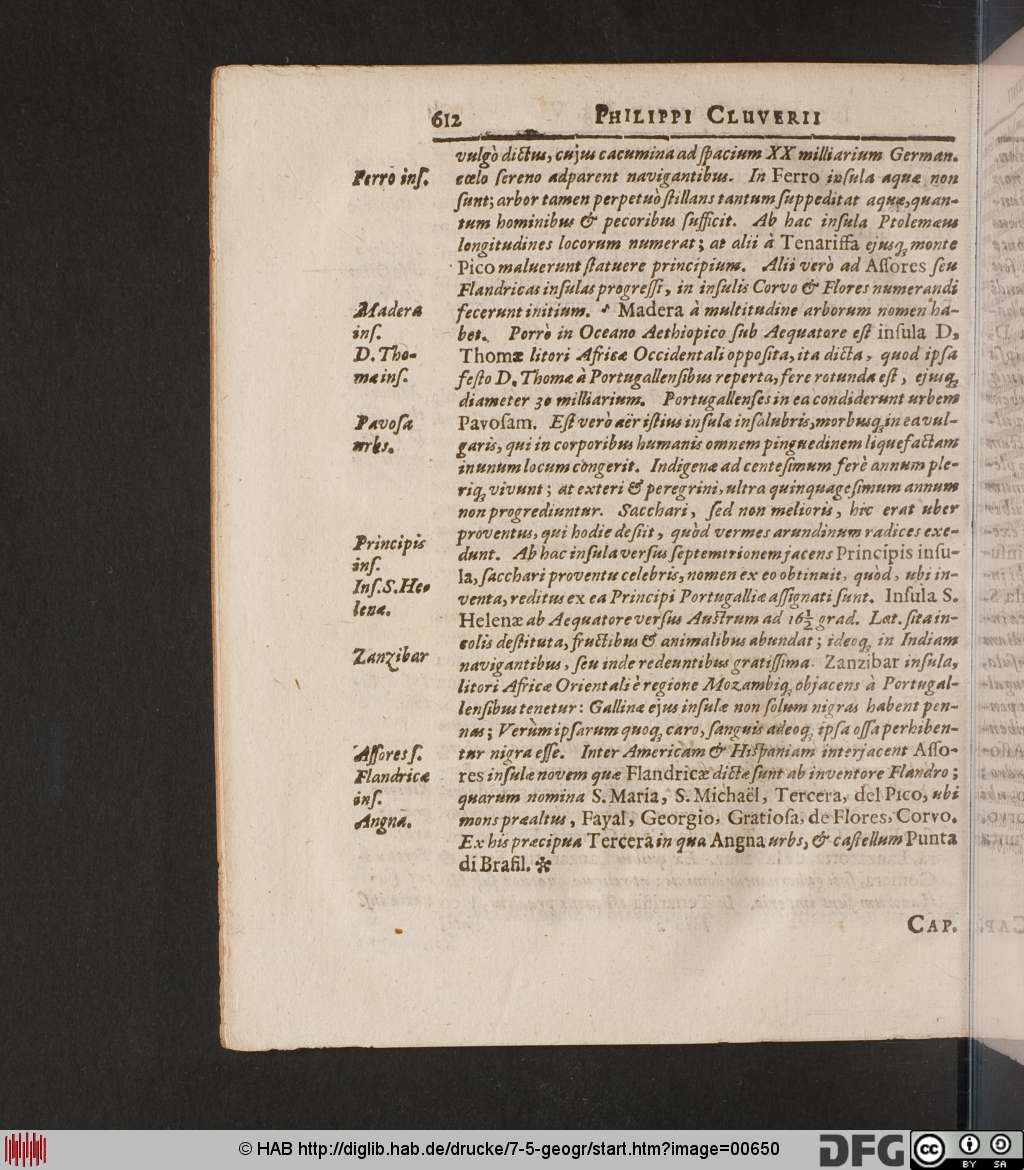 612 PHILIPPI CLUVERII
vulgò dictus, cujus cacumina ad ſpacium XX milliarium German.
Ferro inſ. cœlo ſereno adparent navigantibus. In Ferro inſula aquæ non
ſunt; arbor tamen perpetuò ſtillans tantum ſuppeditat aquæ, quan-
tum hominibus & pecoribus ſufficit. Ab hac inſula Ptolemæus
longitudines locorum numerat; at alii à Tenariffa ejusq; monte
Pico maluerunt ſtatuere principium. Alii verò ad Aſſores ſeu
Flandricas inſulas progreſſi, in inſulis Corvo & Flores numerandi
Madera fecerunt initium. Madera à multitudine arborum nomen ha-
inſ. bet. Porrò in Oceano Aethiopico ſub Aequatore eſt inſula D.
D. Tho- Thomæ litori Africæ Occidentali oppoſita, ita dicta, quod ipſa
mæ inſ. feſto D. Thomæ à Portugallenſibus reperta, fere rotunda eſt, ejusq;
diameter 30 milliarium. Portugallenſes in ea condiderunt urbem
Pavoſa Pavoſam. Eſt verò aër iſtius inſulæ inſalubris, morbusq; in ea vul-
urbs. garis, qui in corporibus humanis omnem pinguedinem liquefactam
in unum locum congerit. Indigenæ ad centeſimum ferè annum ple-
riq; vivunt; at exteri & peregrini, ultra quinquageſimum annum
non progrediuntur. Sacchari, ſed non melioris, hic erat uber
proventus, qui hodie deſiit, quòd vermes arundinum radices exe-
Principis dunt. Ab hac inſula verſus ſeptemtrionem jacens Principis inſu-
inſ. la, ſacchari proventu celebris, nomen ex eo obtinuit, quòd, ubi in-
Inſ. S. He- venta, reditus ex ea Principi Portugalliæ aſſignati ſunt. Inſula S.
lenæ. Helenæ ab Aequatore verſus Auſtrum ad 16½ grad. Lat. ſita in-
colis deſtituta, fructibus & animalibus abundat; ideoq; in Indiam
Zanzibar navigantibus, ſeu inde redeuntibus gratiſſima. Zanzibar inſula,
litori Africæ Orientali è regione Mozambiq; objacens à Portugal-
lenſibus tenetur: Gallinæ ejus inſulæ non ſolum nigras habent pen-
nas; Verùm ipſarum quoq; caro, ſanguis adeoq; ipſa oſſa perhiben-
Aſſores ſ. tur nigra eſſe. Inter Americam & Hiſpaniam interjacent Aſſo-
Flandricæ res inſulæ novem quæ Flandricæ dictæ ſunt ab inventore Flandro;
inſ. quarum nomina S. Maria, S. Michaël, Tercera, del Pico, ubi
Angna. mons præaltus, Fayal, Georgio, Gratioſa, de Flores, Corvo.
Ex his præcipua Tercera in qua Angna urbs, & caſtellum Punta
di Braſil. ✻
CAP.
© HAB http://diglib.hab.de/drucke/7-5-geogr/start.htm?image=00650
DFG
cc BY SA